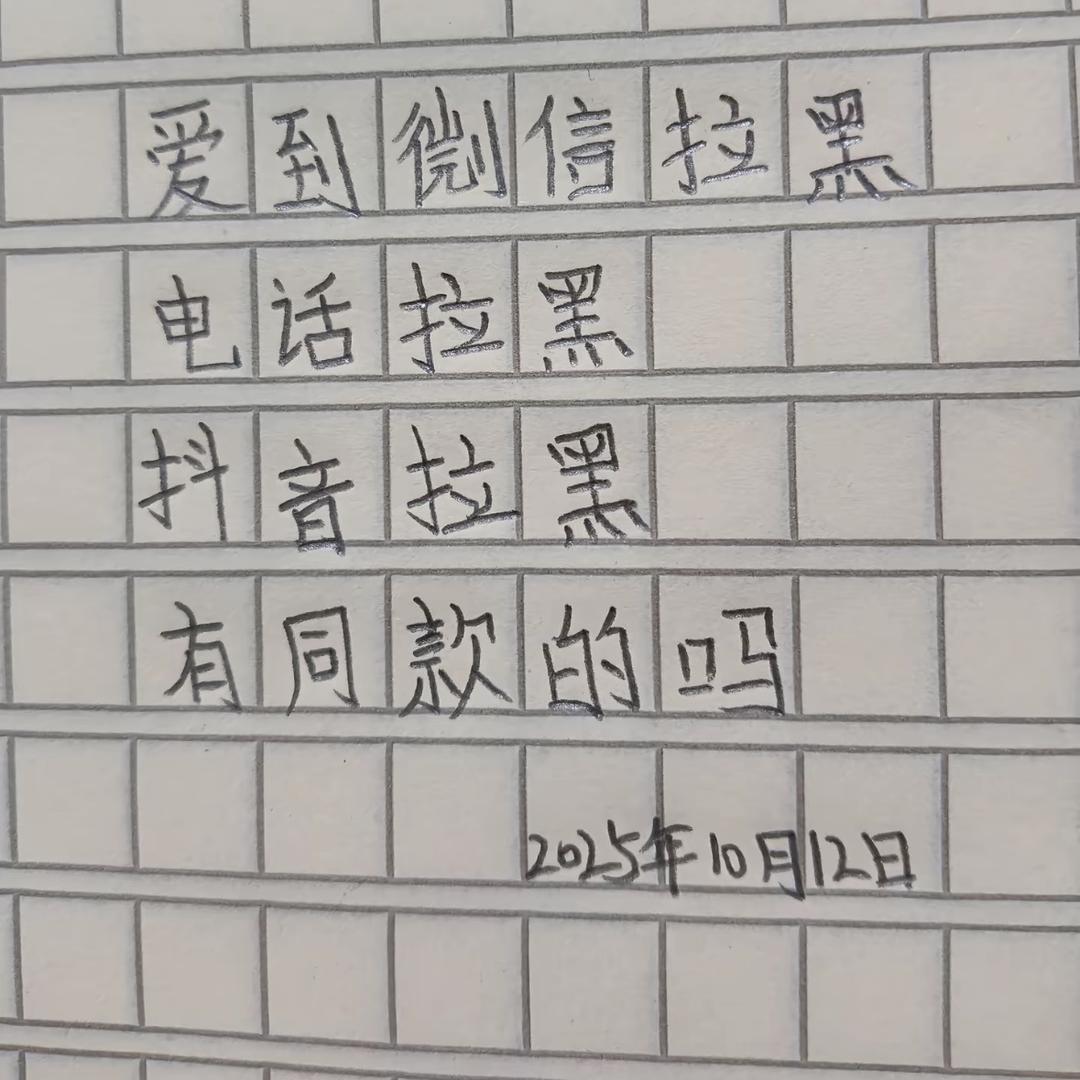 爱到微信拉黑
电话拉黑
抖音拉黑
有同款的吗
2025年10月12日